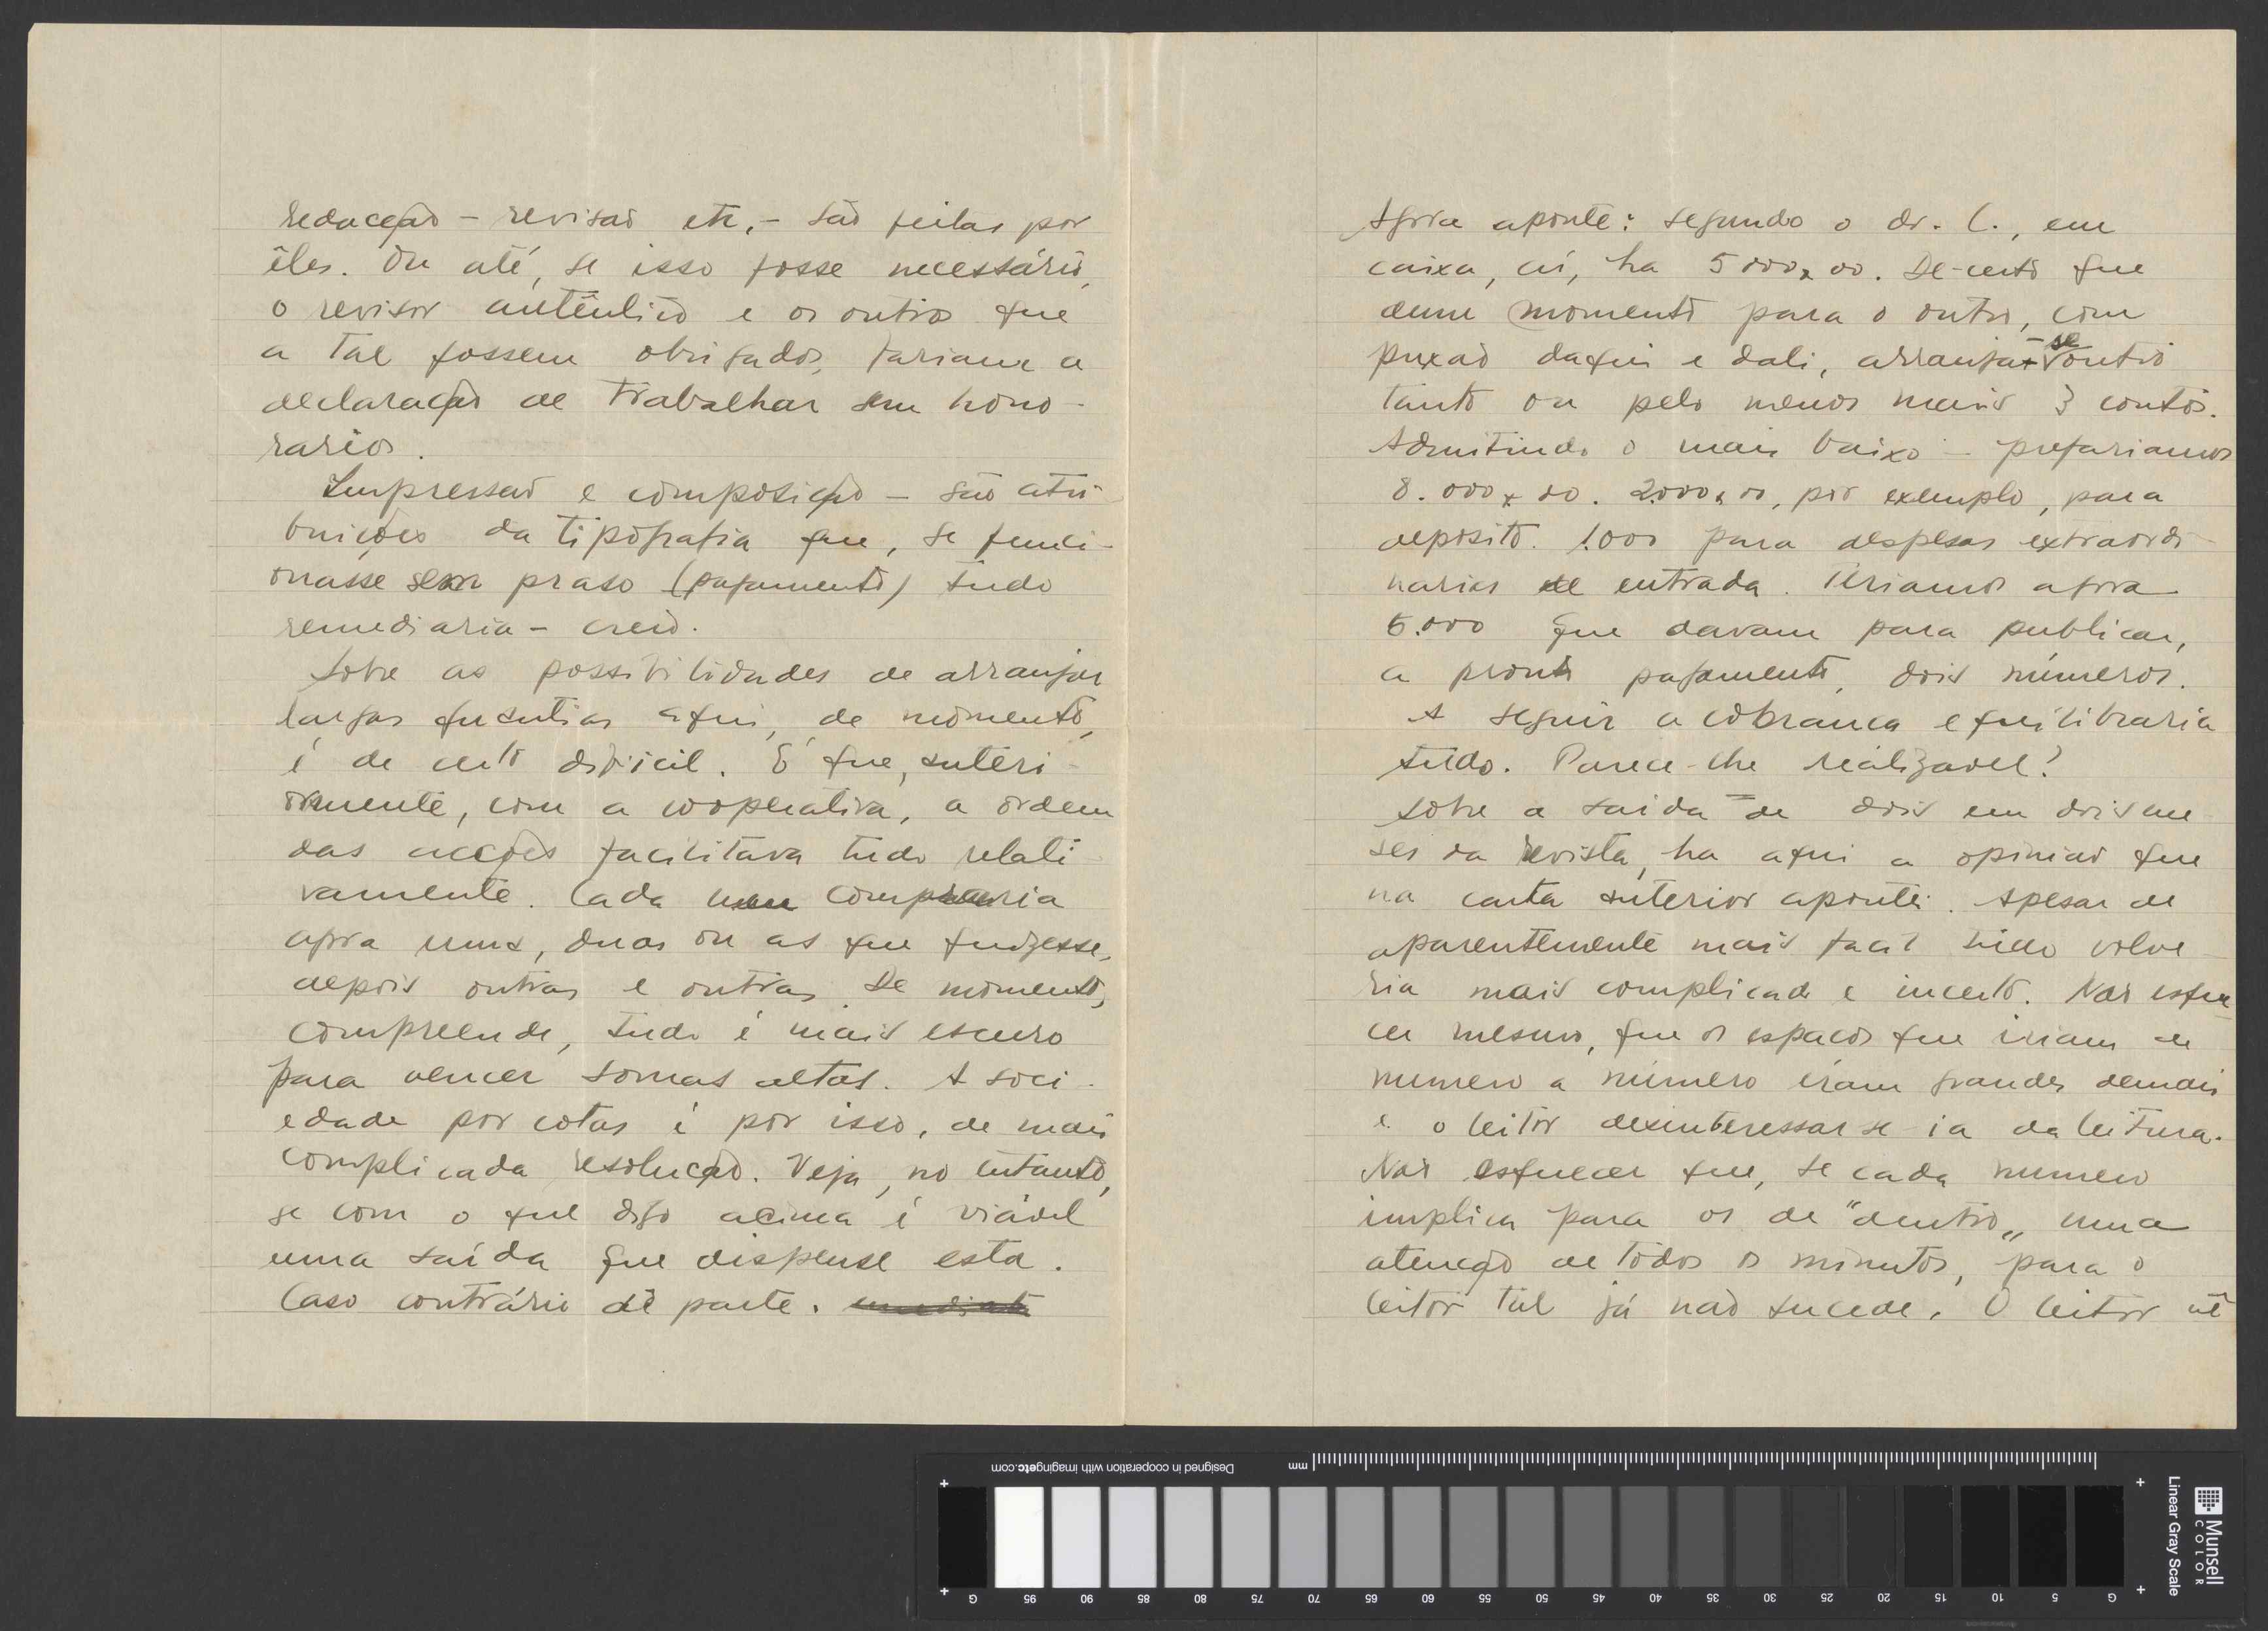 redacção - revisão etc, - são feitas por
êles. Ou até, se isso fosse necessário,
o revisor autêntico e os outros que
a tal fossem obrigados, fariam a
declaração de trabalhar sem hono-
rarios.
Impressão e composição - são atri-
buições da tipografia que, se funci-
onasse sem praso (pagamento) tudo
remediaria - creio.
Sobre as possibilidades de arranjar
largas quantias aqui, de momento,
é de certo dificil. É que, anteri-
ormente, com a cooperativa, a ordem
das acções facilitava tudo relati-
vamente. Cada um compraria
agora uma, duas ou as que quizesse,
depois outras e outras. De momento,
compreende, tudo é mais escuro
para vencer somas altas. A soci-
edade por cotas é por isso, de mais
complicada resolução. Veja, no entanto,
se com o que digo acima é viável
uma saída que dispense esta.
Caso contrário dê parte.
Agora aponte: segundo o dr. C., em
caixa, aí, ha 5000x00. De-certo que
dum momento para o outro, com
puxão daqui e dali, arranja-se outro
tanto ou pelo menos mais 3 contos.
Admitindo o mais baixo - prefariamos
8.000x00. 2.000x00, por exemplo, para
deposito. 1.000 para despesas extraordi-
narias de entrada. Teriamos agora
5.000 que davam para publicar,
a pronto pagamento, dois números.
A seguir a cobrança equilibraria
tudo. Parece-lhe realizavel?
Sobre a saida de dois em dois me-
ses da revista, ha aqui a opinião que
na carta anterior apontei. Apesar de
aparentemente mais facil tudo volve-
ria mais complicado e incerto. Não esque-
cer mesmo, que os espaços que iriam de
numero a número eram grandes demais
e o leitor desinteressar-se-ia da leitura.
Não esquecer que, se cada numero
implica para os de "dentro" uma
atenção de todos os minutos, para o
leitor tal já não sucede. O leitor vê
Designed in cooperation with imagingetc.com
mm
Munsell
COLOR
Linear Gray Scale
G 95 90 85 80 75 70 65 60 55 50 45 40 35 30 25 20 15 10 5 G